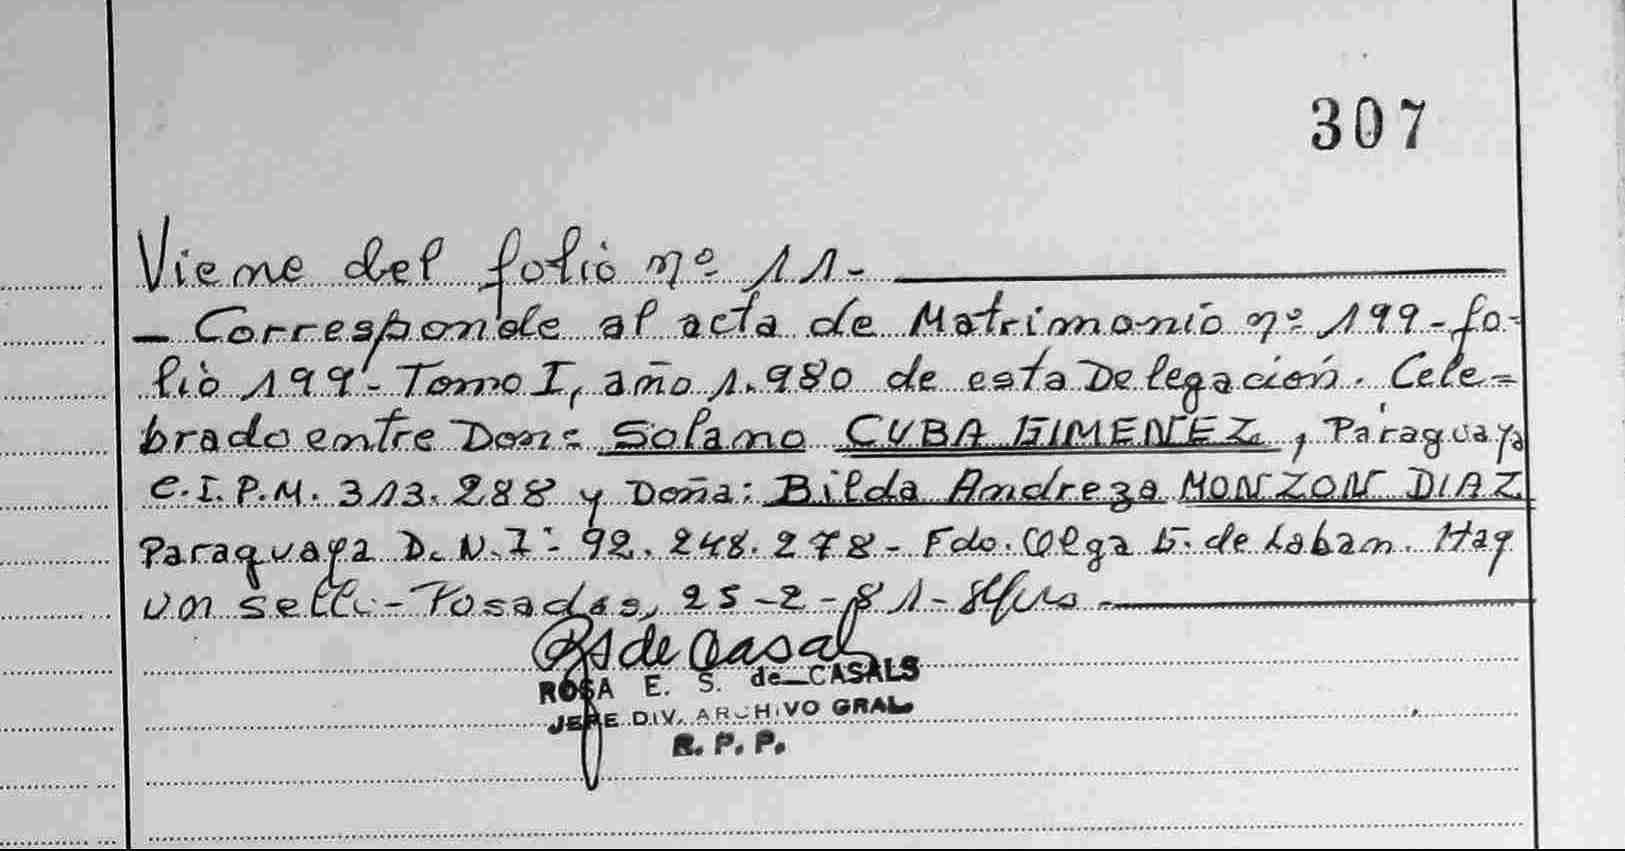 307
Viene del folio nº 11-
- Corresponde al acta de Matrimonio nº 199-fo-
lio 199- Tomo I, año 1.980 de esta Delegación. Cele-
brado entre Don: Solano CUBA GIMENEZ, Paraguaya
C.I.P.M. 313.288 y Doña: Bilda Andreza MONZON DIAZ
Paraguaya D.N.I: 92.248.278- Fdo. Olga G. de Laban. Hay
un sello- Posadas, 25-2-81-
RS de Casals
ROSA E. S. de CASALS
JEFE DIV. ARCHIVO GRAL
R. P. P.